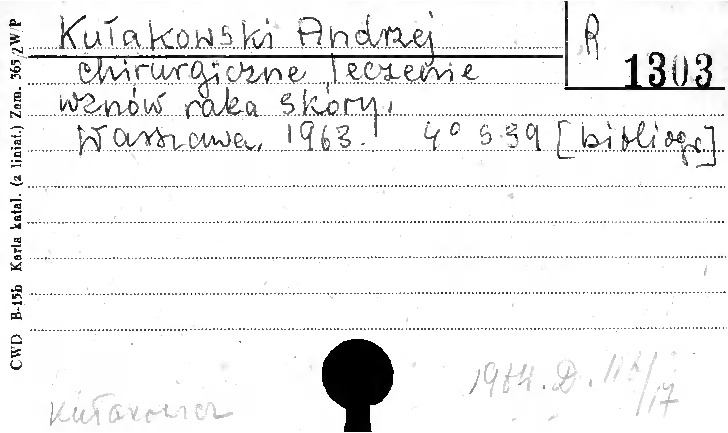 Kułakowski Andrzej
R 1303
chirurgiczne leczenie
wznów raka skóry.
Warszawa, 1963. 4° s 39 [bibliogr]
CWD B-15b Karta katal. (z liniat.) Zam. 365/ZW/P
1964. D.